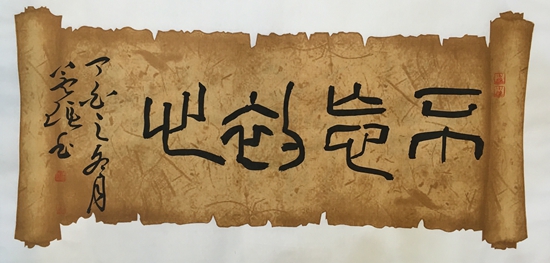 不忘初心
丁酉之冬月